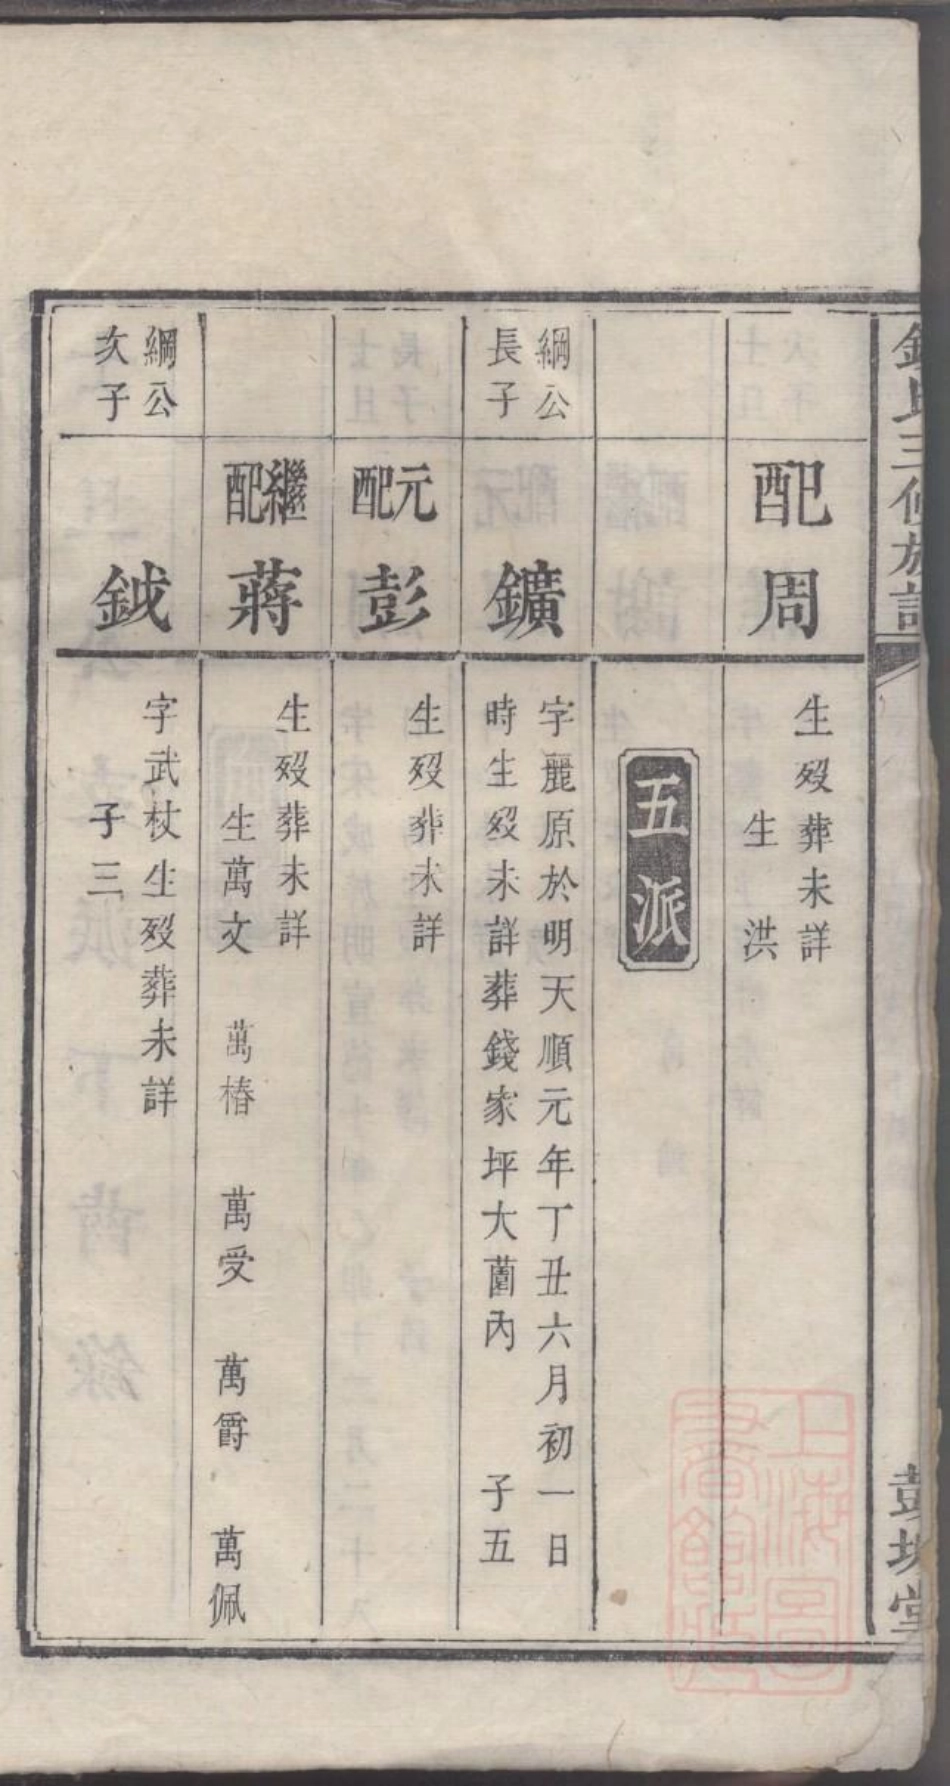 錢氏三修族譜
彭城堂
配周
生歿葬未詳
生 洪
五派
綱公
長子
鑛
字麗原於明天順元年丁丑六月初一日
時生歿未詳葬錢家坪大薗內 子五
元配
彭
生歿葬未詳
繼配
蔣
生歿葬未詳
生萬文 萬椿 萬受 萬爵 萬佩
綱公
次子
鉞
字武杖生歿葬未詳
子三
上海圖
書館藏